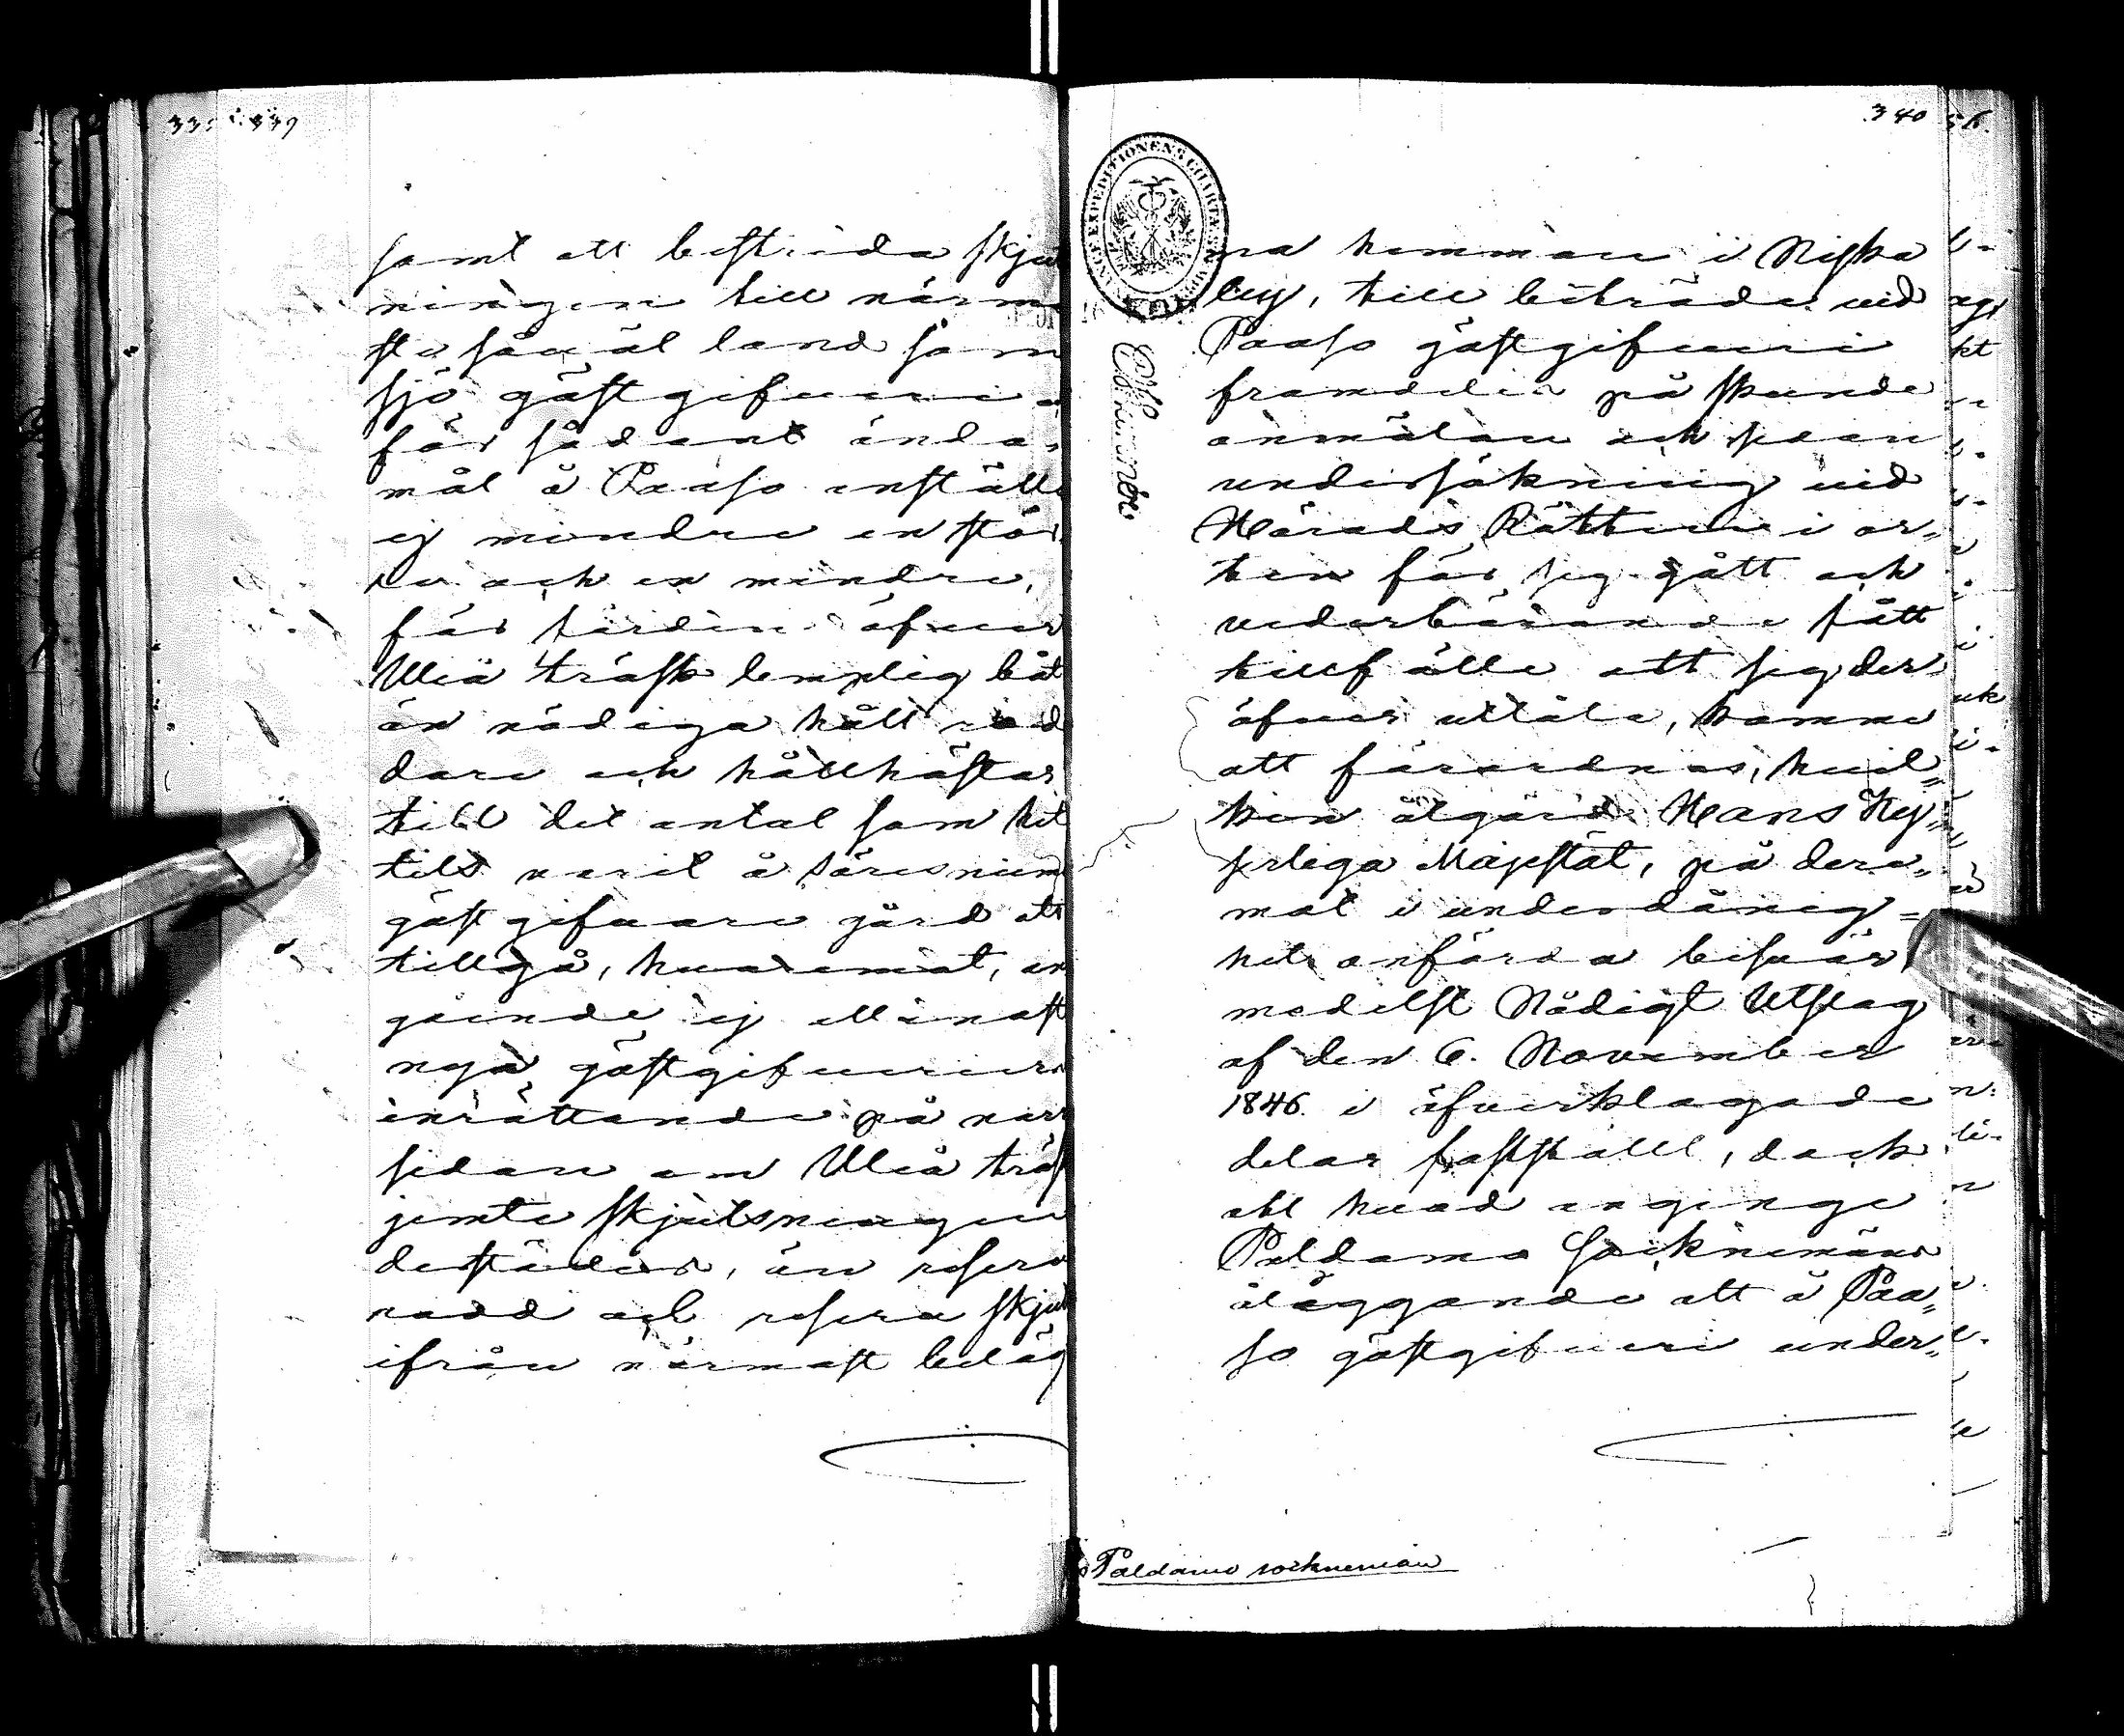 339
samt att bestrida skjut
ningen till närma
ste såväl land som
sjö gästgifveri
för sådant ända„
mål å Paaso anställa
ej mindre en stör
re och en mindre,
för färden öfver
Uleå träsk lemplig båt
än nödiga håll rod
dare och hållhästar
till det antal som hit
tils varit å Säresniemi
gästgifvare gård att
tillgå, hvaremot, an
gående ej allenast
nya gästgifveriers
inrättande på norr
sidan om Uleå träsk
jemte skjutsningen
derstädes, än reserv
rodd och reserv skjut
ifrån närmast beläg
340
na hemman i Niska
by, till biträde vid
Paaso gästgifveri
framdeles på skeende
anmälan och sedan
undersökning vid
Härads Rätten i or„
ten för sig gått och
vederbörande fått
tillfälle att sig der
öfver utlåta, komme
att förordnas, hvil„
ken åtgärd Hans Kej„
serliga Majestät, på dere„
mot i underdånig=
het anförda besvär
medelst Nådigt Utslag
af den 6. November
1846. i öfverklagade
delar fastställt, dock
att hvad anginge
Paldamo Socknemäns
åläggande att å Paa„
so gästgifveri under„
Paldamo socknemän